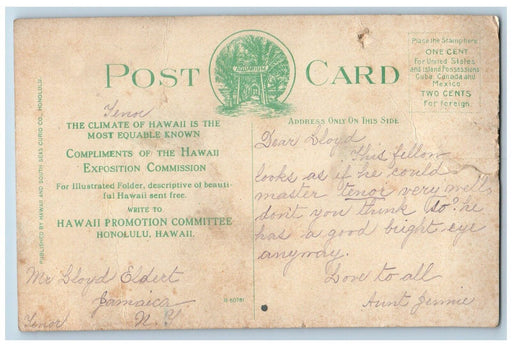 POST CARD
AQUARIUM
Place the Stamp here
ONE CENT
For United States
and Island Possessions
Cuba, Canada and
Mexico
TWO CENTS
for foreign.
Tenor
THE CLIMATE OF HAWAII IS THE
MOST EQUABLE KNOWN
COMPLIMENTS OF THE HAWAII
EXPOSITION COMMISSION
For Illustrated Folder, descriptive of beauti-
ful Hawaii sent free.
WRITE TO
HAWAII PROMOTION COMMITTEE
HONOLULU, HAWAII.
PUBLISHED BY HAWAII AND SOUTH SEAS CURIO CO., HONOLULU.
Mr Lloyd Eldert
Jamaica
N. Y
Tenor
ADDRESS ONLY ON THIS SIDE
Dear Lloyd
This fellow
looks as if he could
master tenor very well
don't you think so? he
has a good bright eye
anyway.
Love to all
Aunt Jennie